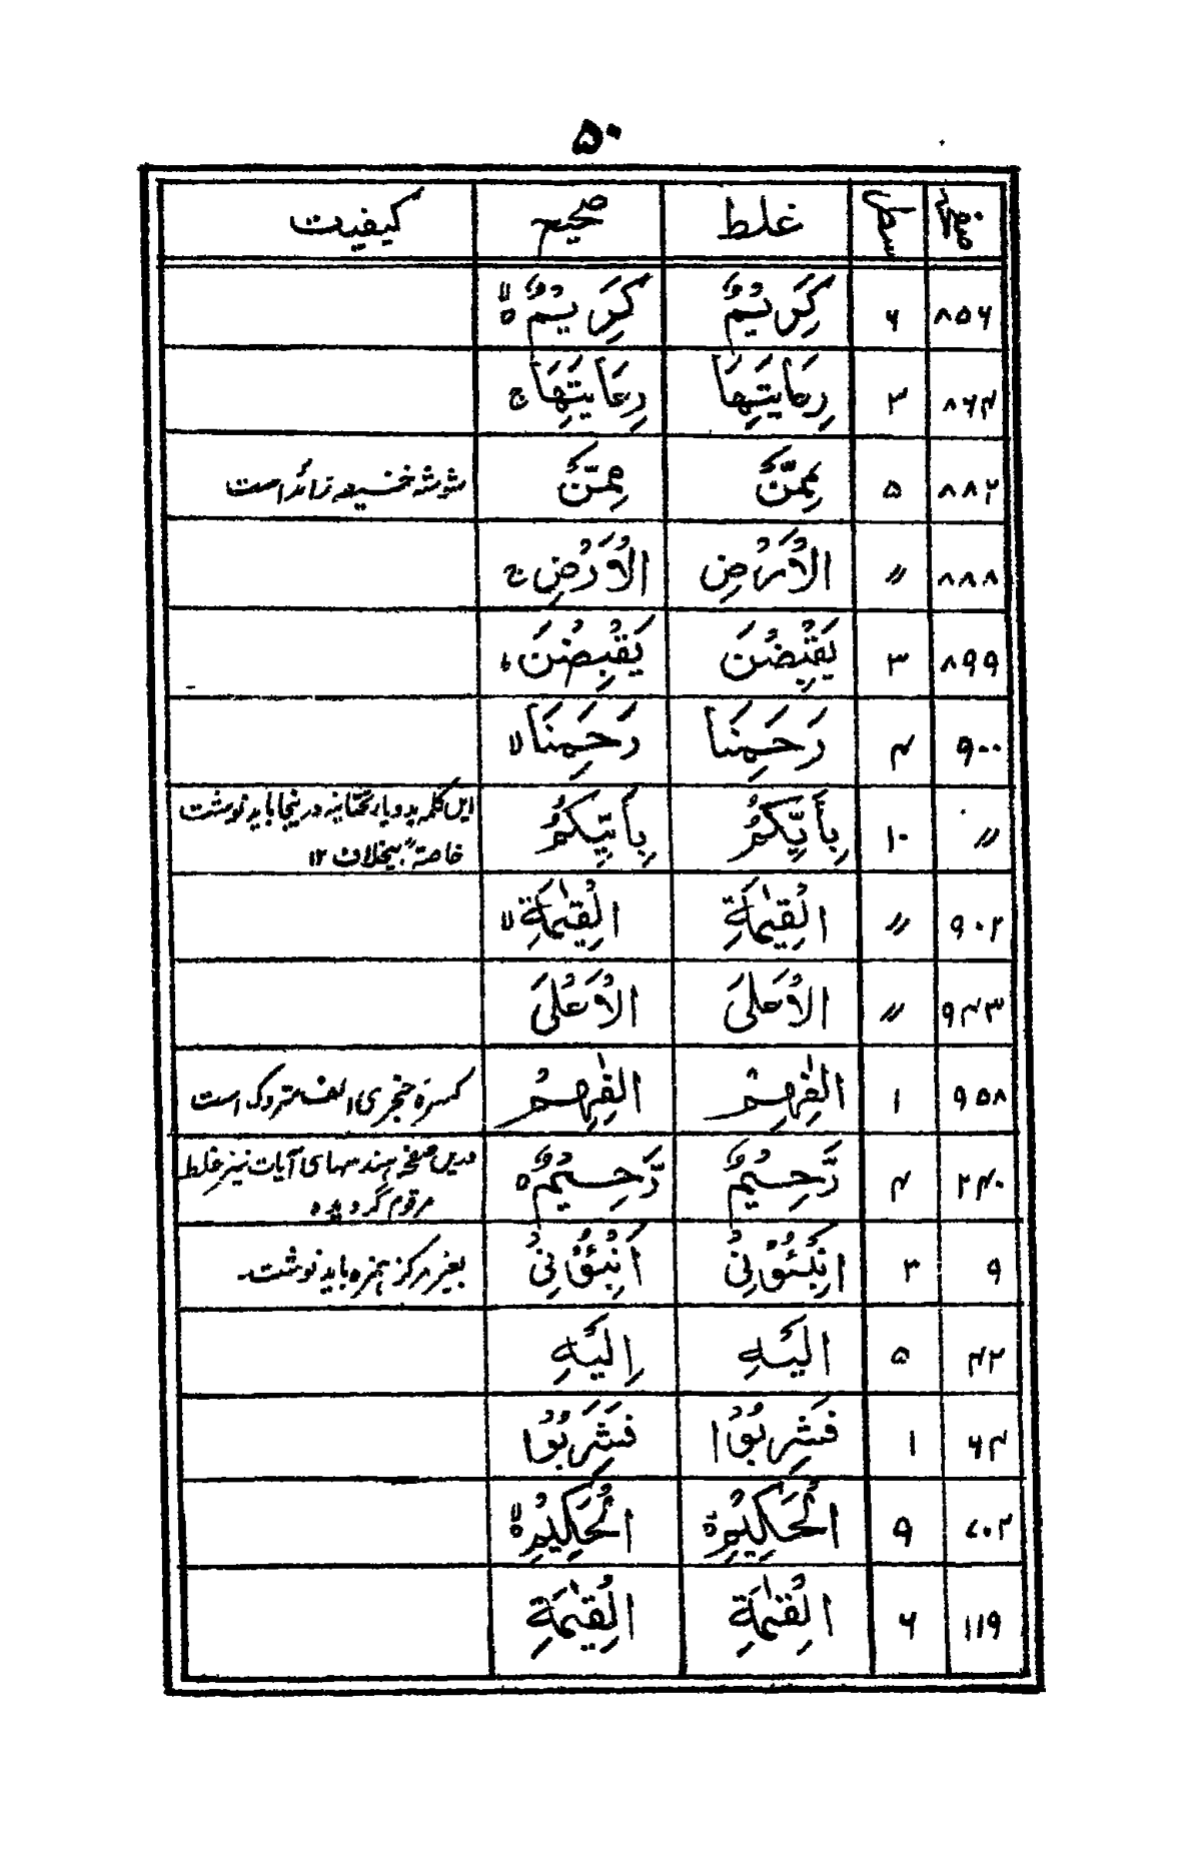 ۵۰
صفحہ سطر غلط صحیح کیفیت
۸۵۶ ۶ كَرِيْمٌ كَرِيْمٌ ۙ
۸۶۴ ۳ رِعَايَتِهَا رِعَايَتِهَا ج
۸۸۲ ۵ مِمَّنْ مِمَّنْ شوشہ خفیفہ زائد است
۸۸۸ 〃 الْاَرْضِ الْاَرْضِ ج
۸۹۹ ۳ يَقْبِضْنَ يَقْبِضْنَ ؕ
۹۰۰ ۴ رَحِمَنَا رَحِمَنَا لا
〃 ۱۰ بِأَيِّكُمُ بِأَييِّكُمُ این کلمہ بدو یاء تحتانیہ درینجا باید نوشت
خاصۃً بیخلاف ۱۲
۹۰۲ 〃 الْقِيٰمَةِ الْقِيٰمَةِ لا
۹۴۳ 〃 الْاَعْلَى الْاَعْلَى
۹۵۸ ۱ الٰفِهِمْ الٰفِهِمْ کسرہ خنجری الف متروک است
۲۴۰ ۴ رَّحِيْمٌ رَّحِيْمٌ ٥ درین صفحہ ہندسہای آیات نیز غلط
مرقوم گردیدہ
۹ ۳ اَنْۢبِـُٔوْنِيْ اَنْۢبِـُٔوْنِيْ بغیر مرکز ہمزہ باید نوشت۔
۴۲ ۵ اِلَيْهِ اِلَيْهِ
۶۴ ۱ فَشَرِبُوْا فَشَرِبُوْا
۷۰۲ ۹ الْحَكِيْمِ ۙ الْحَكِيْمِ ۙ
۱۱۹ ۶ الْقِيٰمَةِ الْقِيٰمَةِ